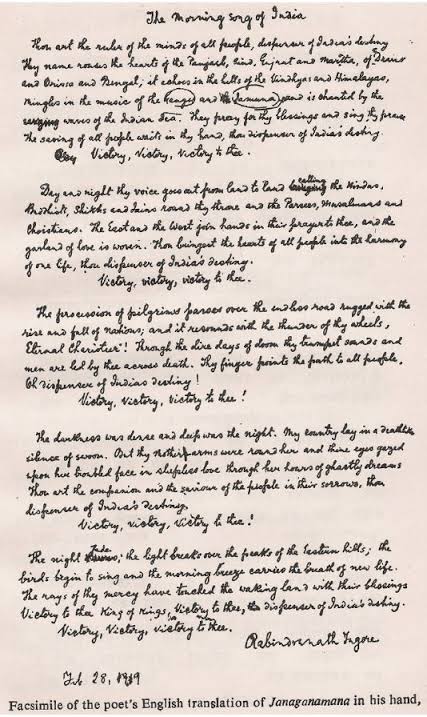 The Morning Song of India
Thou art the ruler of the minds of all people, dispenser of India's destiny
Thy name rouses the hearts of the Panjaub, Sind, Gujrat and Maratha, of Dravid
and Orissa and Bengal; it echoes in the hills of the Vindhyas and Himalayas,
mingles in the music of the Ganges and the Jamuna and is chanted by the
waves of the Indian Sea. They pray for thy blessings and sing thy praise
The saving of all people waits in thy hand, thou dispenser of India's destiny.
Victory, Victory, Victory to thee.
Day and night thy voice goes out from land to land calling the Hindus,
Buddhists, Shikhs and Jains round thy throne and the Parsees, Musalmans and
Christians. The East and the West join hands in their prayer to thee, and the
garland of love is woven. Thou bringest the hearts of all people into the harmony
of one life, thou dispenser of India's destiny.
Victory, victory, victory to thee.
The procession of pilgrims passes over the endless road rugged with the
rise and fall of nations; and it resounds with the thunder of thy wheels,
Eternal Charioteer! Through the dire days of doom thy trumpet sounds and
men are led by thee across death. Thy finger points the path to all people,
Oh dispenser of India's destiny!
Victory, Victory, Victory to thee!
The darkness was dense and deep was the night. My country lay in a deathlike
silence of swoon. But thy mother arms were round her and thine eyes gazed
upon her troubled face in sleepless love through her hours of ghastly dreams
Thou art the companion and the saviour of the people in their sorrows, thou
dispenser of India's destiny
Victory, victory, Victory to thee!
The night fades; the light breaks over the peaks of the Eastern hills; the
birds begin to sing and the morning breeze carries the breath of new life.
The rays of thy mercy have touched the waking land with their blessings
Victory to thee King of Kings, Victory to thee, the dispenser of India's destiny.
Victory, Victory, victory to thee.
Rabindranath Tagore
Feb 28, 1919
Facsimile of the poet's English translation of Janaganamana in his hand,